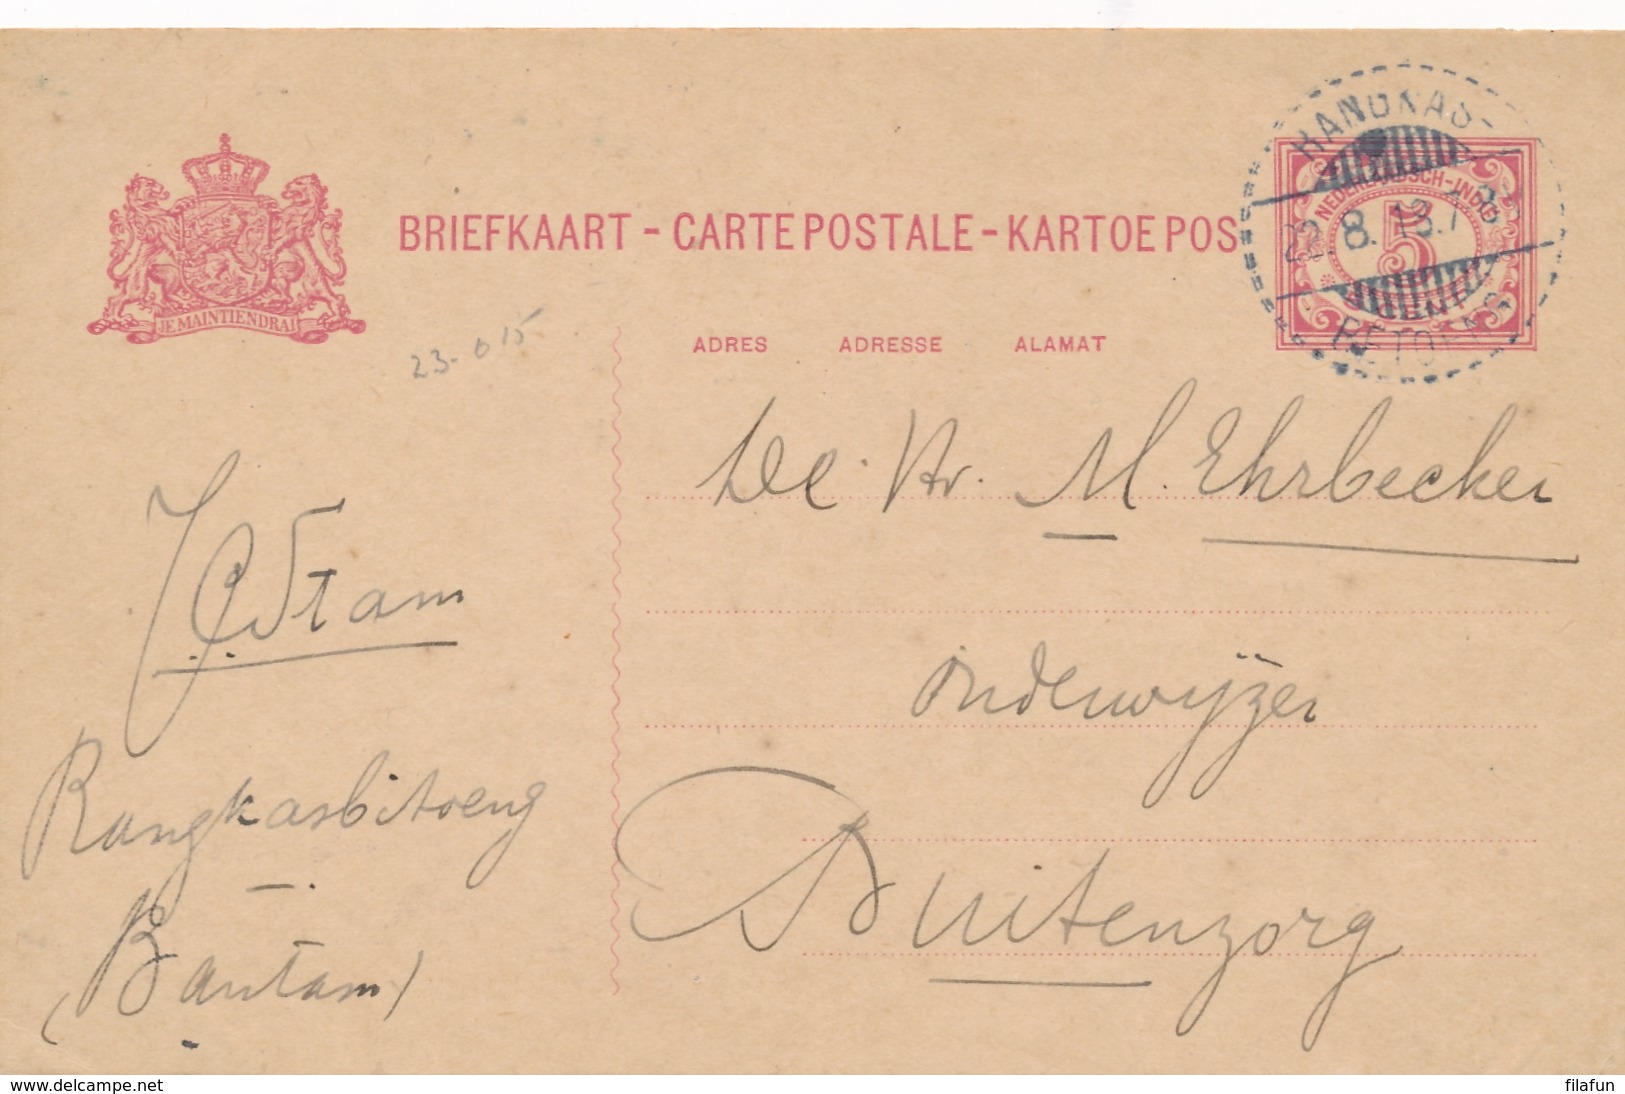 RANGKAS-
22.8.13.7
BETOENG
NEDERLANDSCH-INDIË
5
CENT
JE MAINTIENDRAI
BRIEFKAART - CARTE POSTALE - KARTOE POS
ADRES ADRESSE ALAMAT
23-
M. Ehrbecker
Onderwijzer
Buitenzorg
Rangkasbitoeng
(Bantam)
www.delcampe.net
filafun